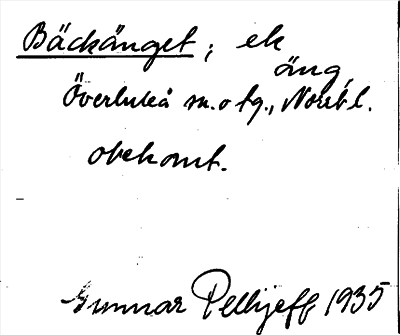 Bäckänget ; ek
äng,
Överluleå sn. o tg., Norrb. l.
obek omt.
Gunnar Pellijeff 1935